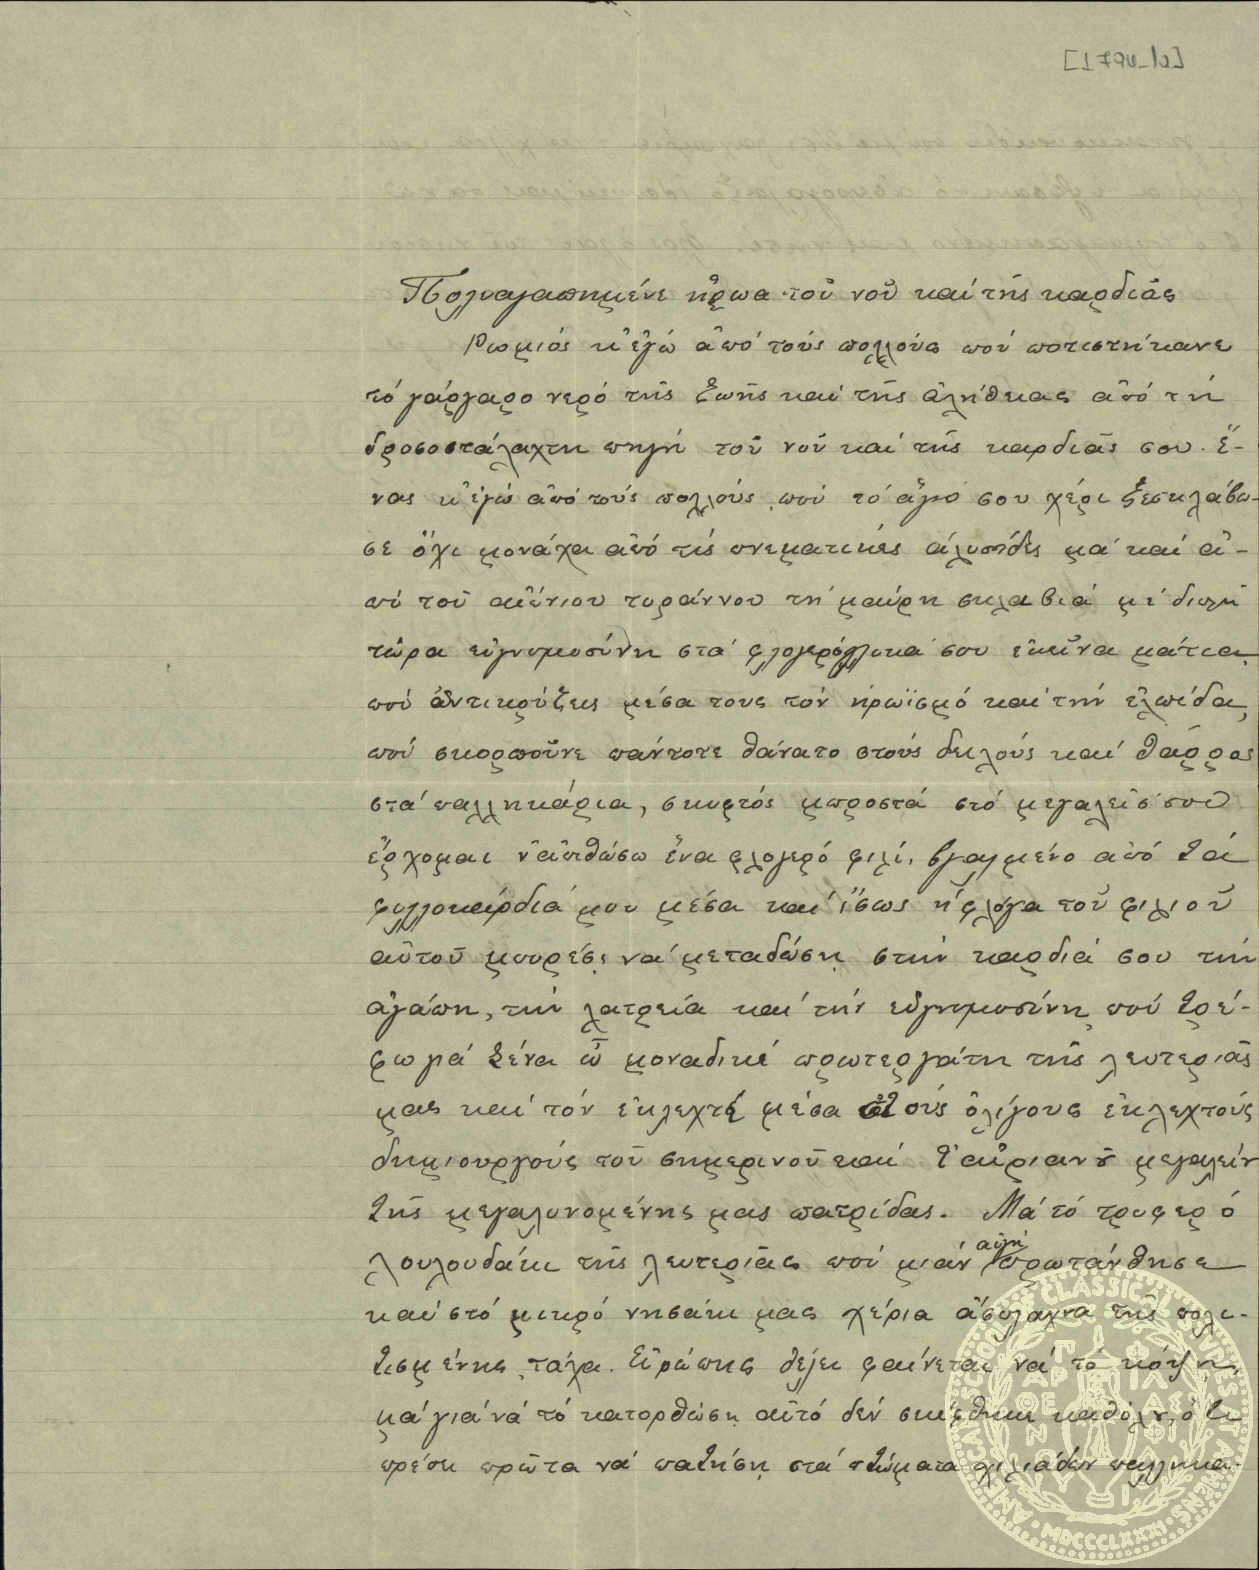 Πολυαγαπημένε ἥρωα τοῦ νοῦ καί τῆς καρδιᾶς
Ρωμιός κ' ἐγώ ἀπό τούς πολλούς πού ποτιστήκανε
τό γάργαρο νερό τῆς ζωῆς καί τῆς ἀλήθειας ἀπό τή
δροσοστάλαχτη πηγή τοῦ νοῦ καί τῆς καρδιᾶς σου. Ἕ-
νας κ' ἐγώ ἀπό τούς πολλούς, πού τό ἅγιο σου χέρι ξεσκλάβω-
σε ὄχι μονάχα ἀπό τίς πνεματικές ἀλυσίδες μά καί ἀ-
πό τοῦ αἰώνιου τυράννου τή μαύρη σκλαβιά μέ διπλῆ
τώρα εὐγνωμοσύνη στά φλογερόγλυκά σου ἐκεῖνα μάτια,
πού ἀντικρύζεις μέσα τους τόν ἡρωϊσμό καί τήν ἐλπίδα,
πού σκορποῦνε πάντοτε θάνατο στούς δειλούς καί θάρρος
στά παλληκάρια, σκυφτός μπροστά στό μεγαλεῖό σου
ἔρχομαι ν' ἀπιθώσω ἕνα φλογερό φιλί, βγαλμένο ἀπό τά
φυλλοκάρδιά μου μέσα καί ἴσως ἡ φλόγα τοῦ φιλιοῦ
αὐτοῦ μπορέσει νά μεταδώση στήν καρδιά σου τήν
ἀγάπη, τήν λατρεία καί τήν εὐγνωμοσύνη πού τρέ-
φω γιά σένα ὦ μοναδικέ πρωτεργάτη τῆς λευτεριᾶς
μας καί τόν ἐκλεχτέ μέσα στούς ὀλίγους ἐκλεχτούς
δημιουργούς τοῦ σημερινοῦ καί τ' αὐριανοῦ μεγαλείου
τῆς μεγαλυνομένης μας πατρίδας. Μά τό τρυφερό
λουλουδάκι τῆς λευτεριᾶς πού μιάν αὐγή πρωτάνθησε
καί στό μικρό νησάκι μας χέρια ἄσπλαχνα τῆς πολι-
τισμένης τάχα Εὐρώπης θέλει φαίνεται νά τό κόψη,
μά γιά νά τό κατορθώση αὐτό δέν σκέφθηκε καθόλου, ὅτι
πρέπει πρῶτα νά πατήση στά πτώματα χιλιάδων παλληκα-